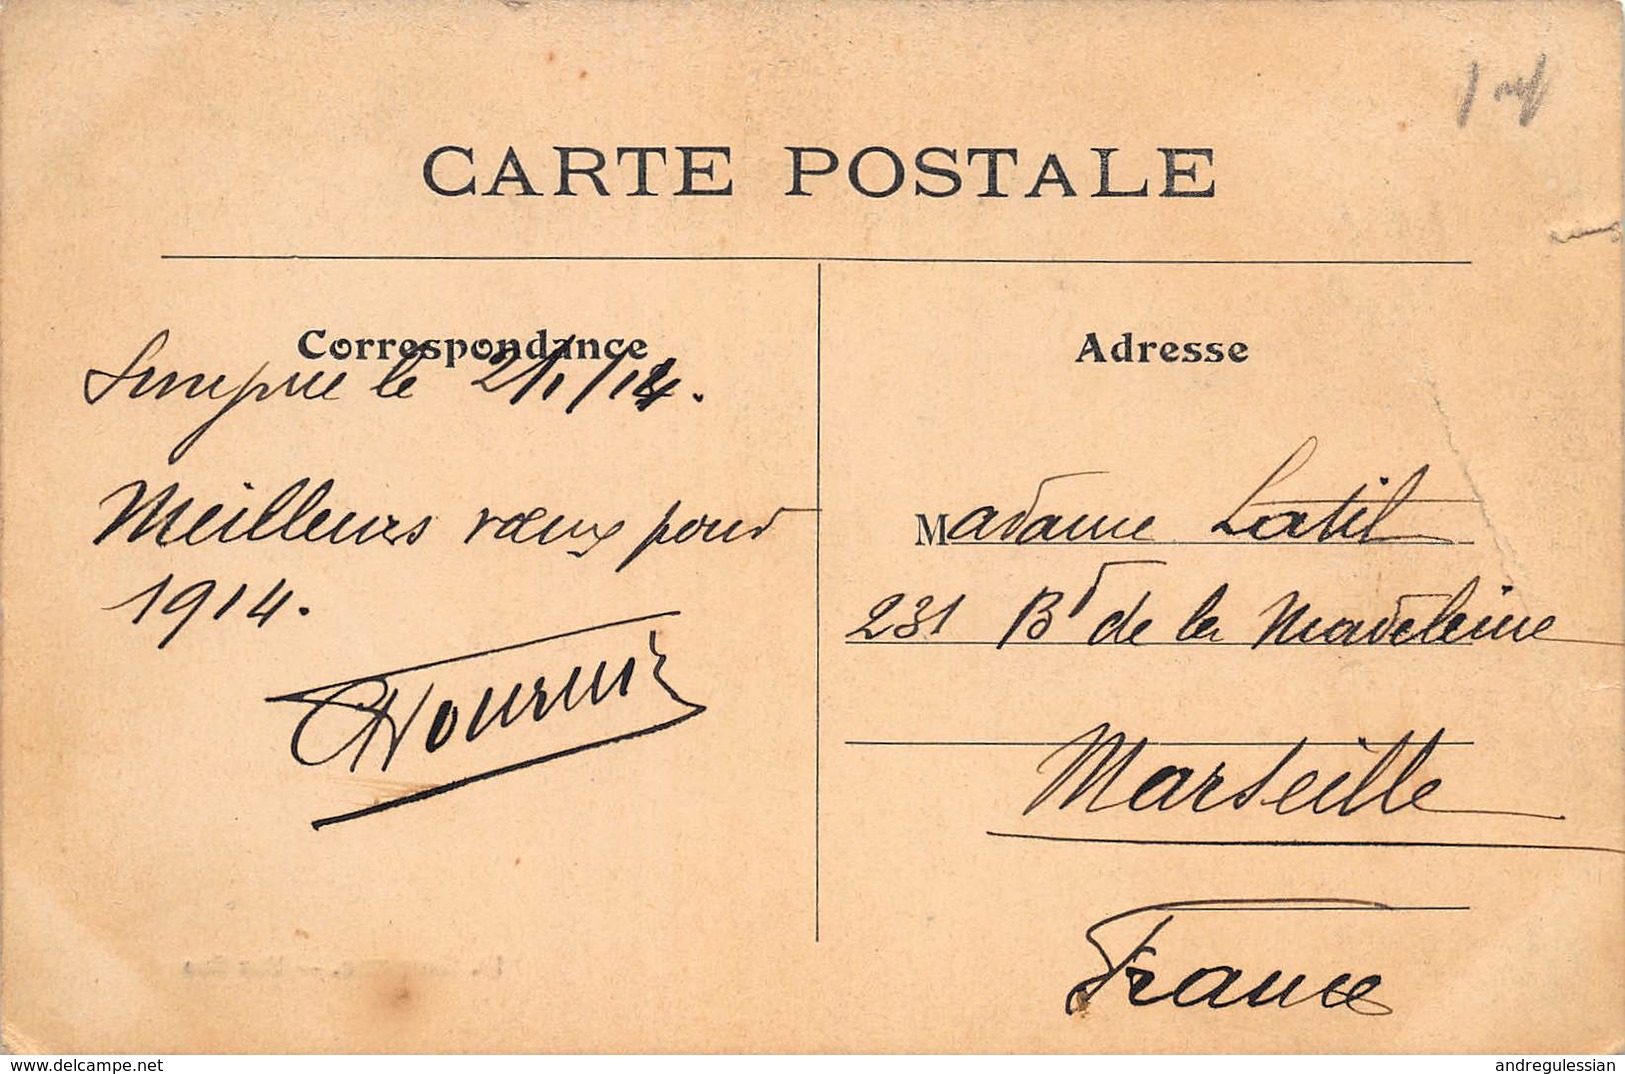 CARTE POSTALE
Correspondance
le 2/1/14.
Meilleurs vœux pour
1914.
Adresse
Madame Latil
231 Bd de la Madeleine
Marseille
France
delcampe.net
andregulessian